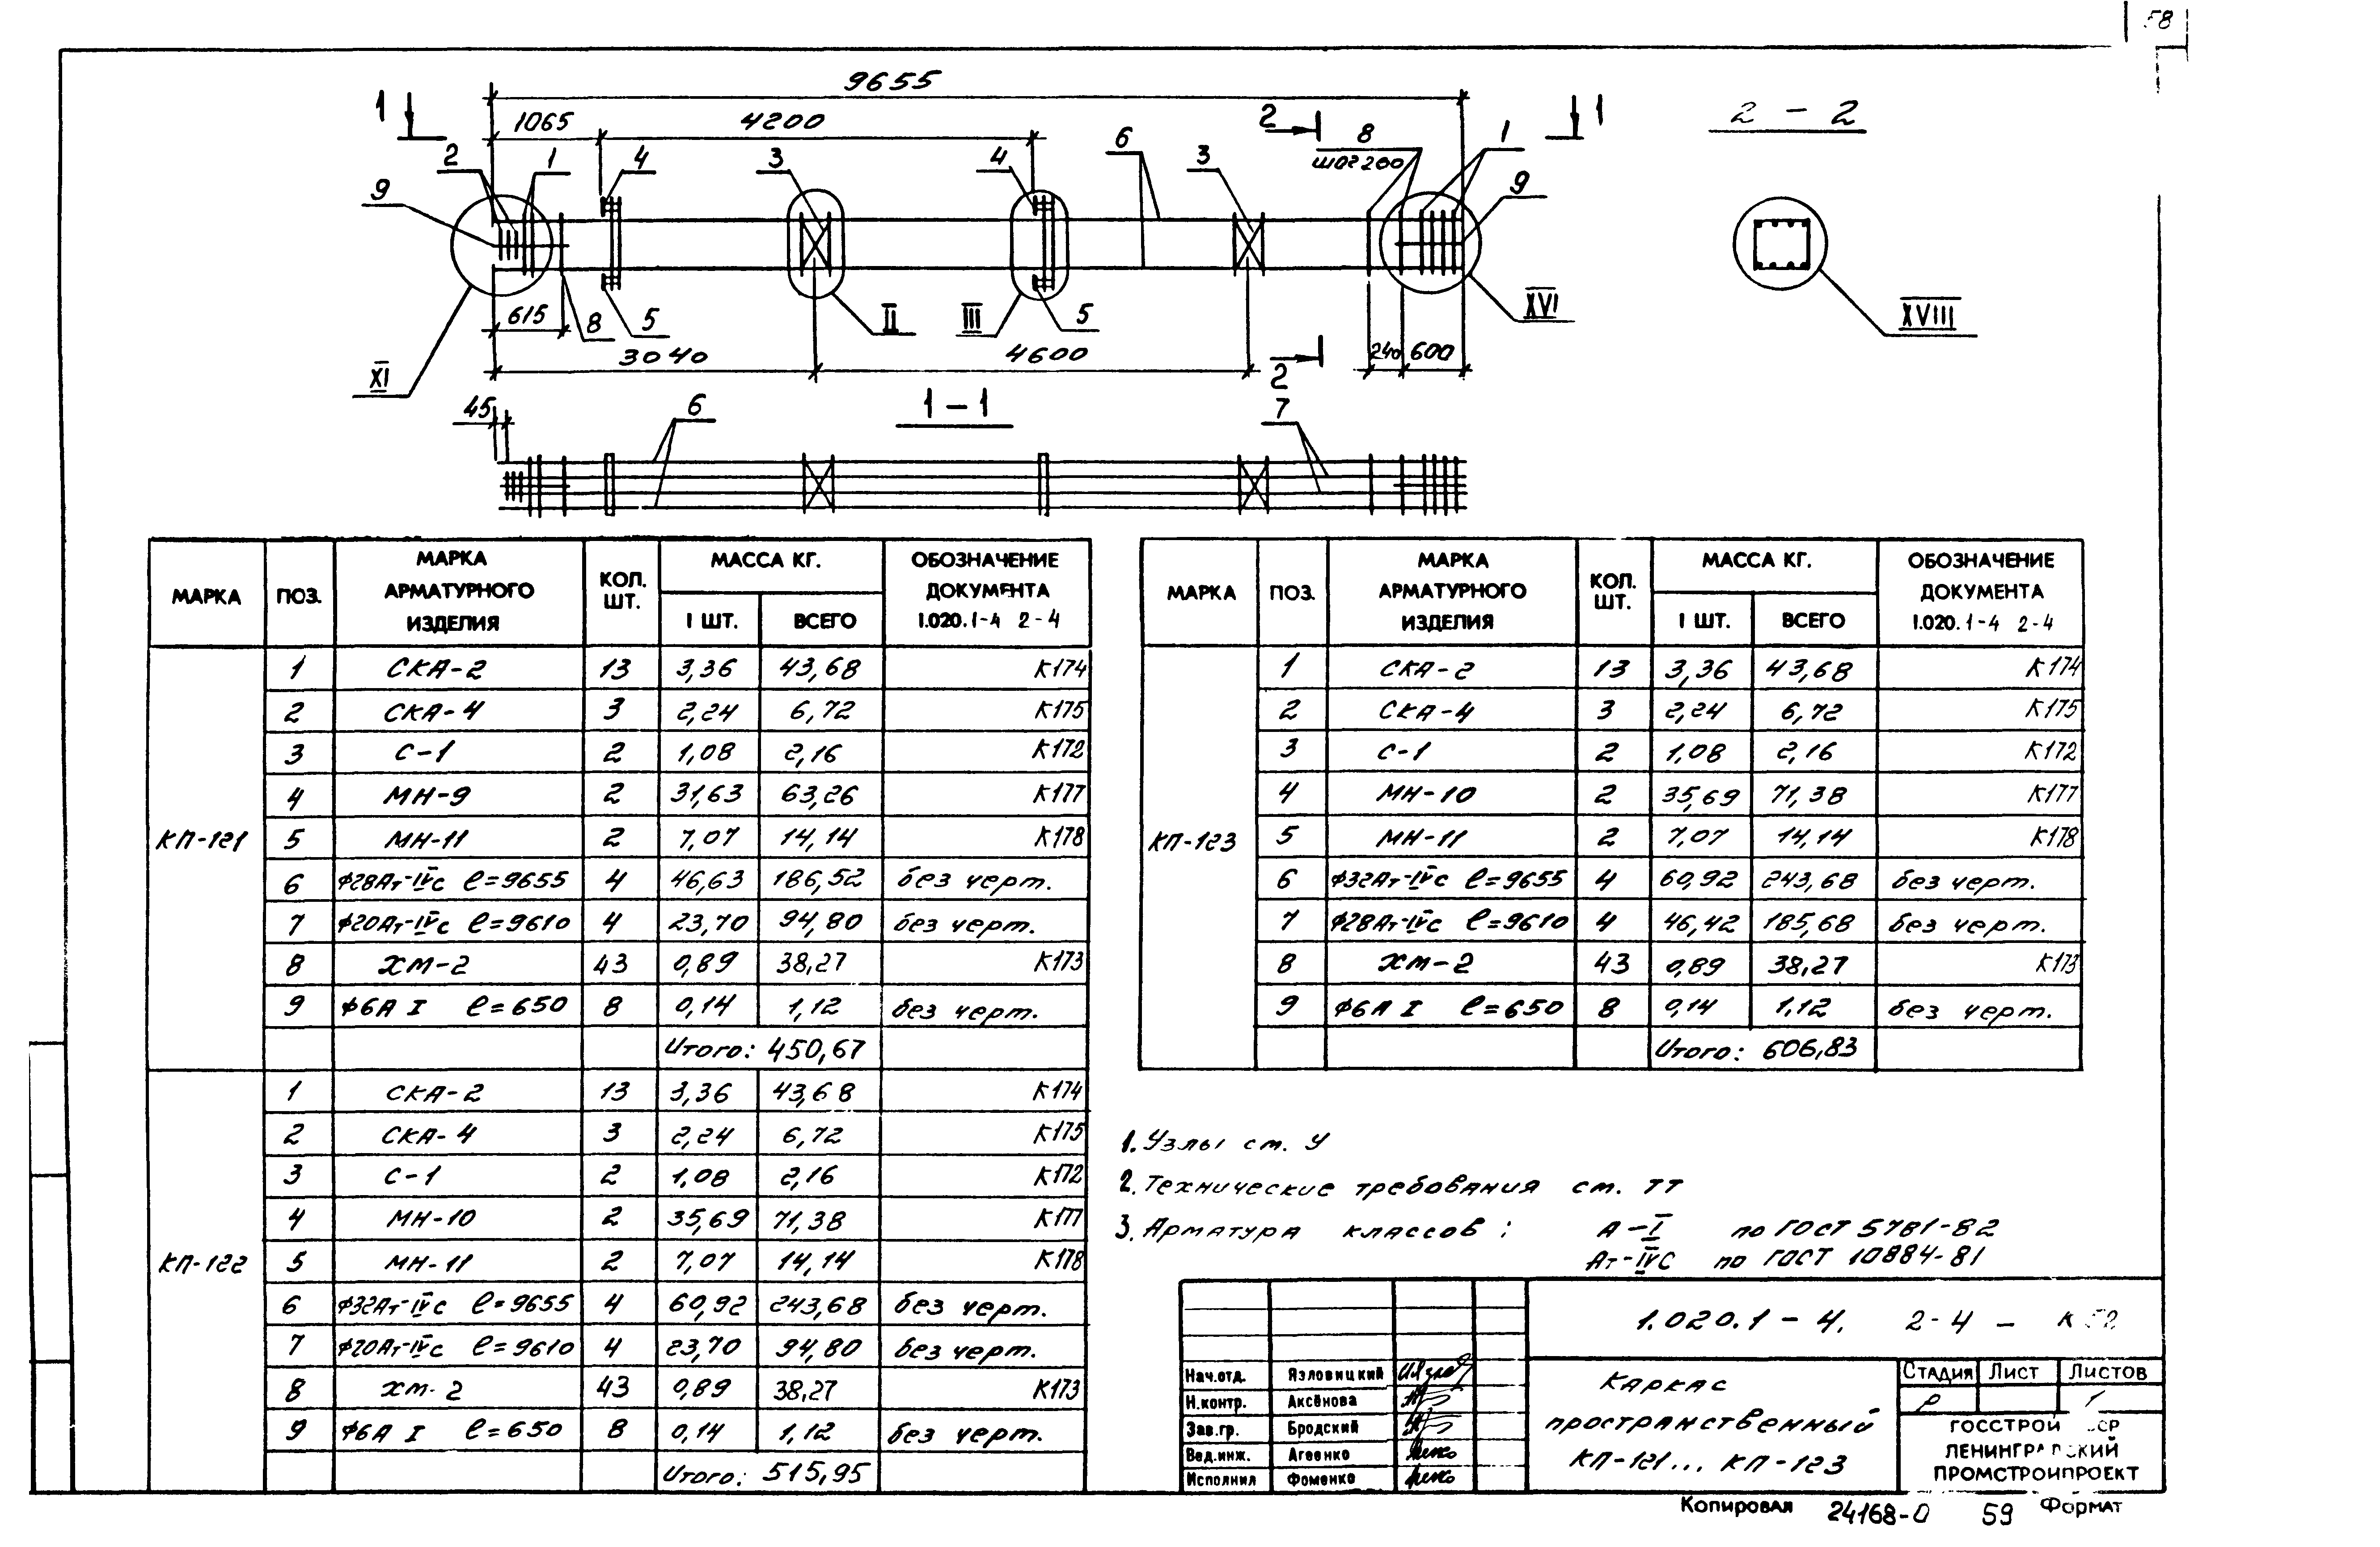 58
9655
1 1065 4200 2 8 1 1 2 – 2
2 1 4 3 4 6 3 шаг 200
9 9
615 8 5 II III 5 XVI XVIII
3040 4600 240 600
XI 2
45 6 1–1 7
МАРКА ПОЗ. МАРКА АРМАТУРНОГО ИЗДЕЛИЯ КОЛ. ШТ. МАССА КГ. ОБОЗНАЧЕНИЕ ДОКУМЕНТА 1.020.1-4 2-4
1 ШТ. ВСЕГО
КП-121
1 СКА-2 13 3,36 43,68 К174
2 СКА-4 3 2,24 6,72 К175
3 С-1 2 1,08 2,16 К172
4 МН-9 2 31,63 63,26 К177
5 МН-11 2 7,07 14,14 К178
6 ϕ28Ат-IVс ℓ=9655 4 46,63 186,52 без черт.
7 ϕ20Ат-IVс ℓ=9610 4 23,70 94,80 без черт.
8 ХМ-2 43 0,89 38,27 К173
9 ϕ6А I ℓ=650 8 0,14 1,12 без черт.
Итого: 450,67
КП-122
1 СКА-2 13 3,36 43,68 К174
2 СКА-4 3 2,24 6,72 К175
3 С-1 2 1,08 2,16 К172
4 МН-10 2 35,69 71,38 К177
5 МН-11 2 7,07 14,14 К178
6 ϕ32Ат-IVс ℓ=9655 4 60,92 243,68 без черт.
7 ϕ20Ат-IVс ℓ=9610 4 23,70 94,80 без черт.
8 ХМ-2 43 0,89 38,27 К173
9 ϕ6А I ℓ=650 8 0,14 1,12 без черт.
Итого: 515,95
МАРКА ПОЗ. МАРКА АРМАТУРНОГО ИЗДЕЛИЯ КОЛ. ШТ. МАССА КГ. ОБОЗНАЧЕНИЕ ДОКУМЕНТА 1.020.1-4 2-4
1 ШТ. ВСЕГО
КП-123
1 СКА-2 13 3,36 43,68 К174
2 СКА-4 3 2,24 6,72 К175
3 С-1 2 1,08 2,16 К172
4 МН-10 2 35,69 71,38 К177
5 МН-11 2 7,07 14,14 К178
6 ϕ32Ат-IVс ℓ=9655 4 60,92 243,68 без черт.
7 ϕ28Ат-IVс ℓ=9610 4 46,42 185,68 без черт.
8 ХМ-2 43 0,89 38,27 К173
9 ϕ6А I ℓ=650 8 0,14 1,12 без черт.
Итого: 606,83
1. Узлы см. У
2. Технические требования см. ТТ
3. Арматура классов: А-I по ГОСТ 5781-82
Ат-IVС по ГОСТ 10884-81
1.020.1-4. 2-4 – К52
Нач.отд. Язловицкий
Н.контр. Аксёнова
Зав.гр. Бродский
Вед.инж. Агеенко
Исполнил Фоменко
Каркас
пространственный
КП-121... КП-123
Стадия Лист Листов
Р 1
ГОССТРОЙ СССР
ЛЕНИНГРАДСКИЙ
ПРОМСТРОЙПРОЕКТ
Копировал 24168-0 59 Формат